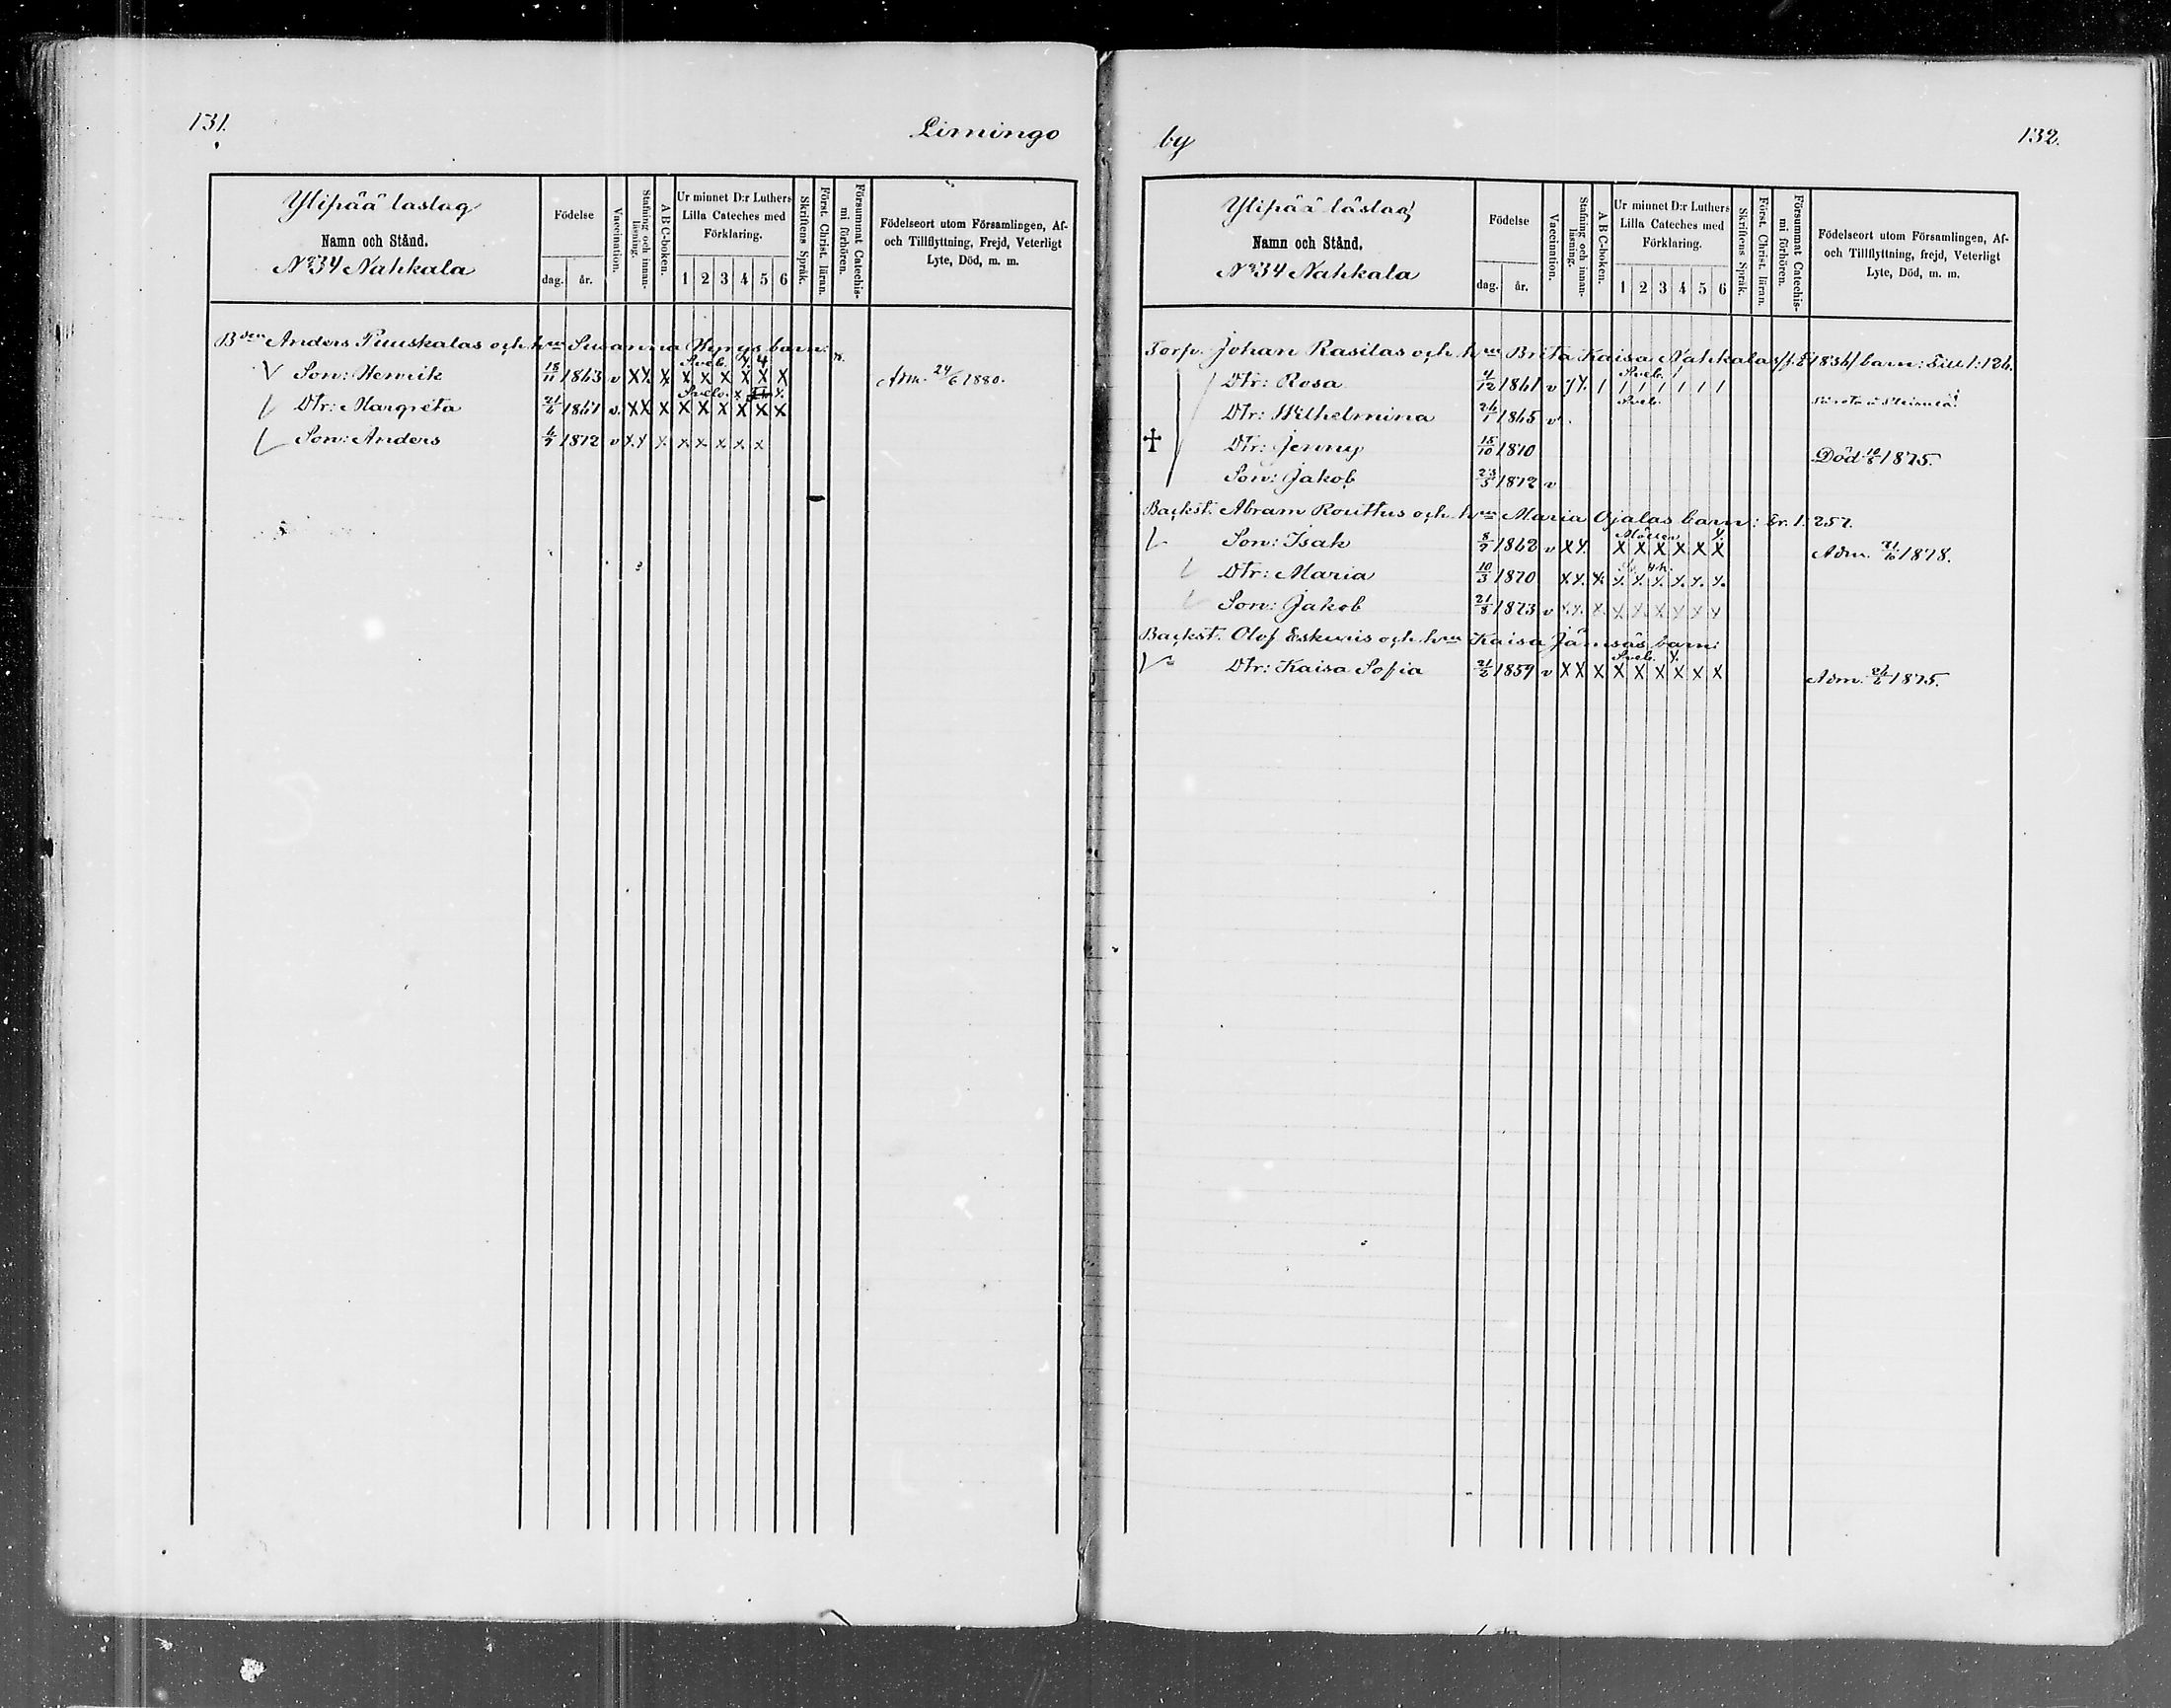 131.
Limingo
Ylipää läslag
Namn och Stånd.
No 34 Nahkala
Födelse
dag.
år.
Vaccination.
Stafning och innan-
läsning.
A B C-boken.
Ur minnet D:r Luthers
Lilla Cateches med
Förklaring.
1 2 3 4 5 6
Skriftens Språk.
Först. Christ. läran.
Försummat Catechis-
mi förhören.
Födelseort utom Församlingen, Af-
och Tillflyttning, Frejd, Veterligt
Lyte, Död, m. m.
Bden Anders Puuskalas och hm Susanna Kyngs barn:
Sveb. 4 4
V Son: Henrik 18/11 1863 v X X X X X X X X X Adm. 24/6 1880.
Sveb. x
Dtr: Margreta 21/6 1867 v. X X X X X X X X X
Son: Anders 6/7 1872 v x x x x x x x x
by
132.
Ylipää läslag
Namn och Stånd.
No 34 Nahkala
Födelse
dag.
år.
Vaccination.
Stafning och innan-
läsning.
A B C-boken.
Ur minnet D:r Luthers
Lilla Cateches med
Förklaring.
1 2 3 4 5 6
Skriftens Språk.
Först. Christ. läran.
Försummat Catechis-
mi förhören.
Födelseort utom Församlingen, Af-
och Tillflyttning, frejd, Veterligt
Lyte, Död, m. m.
Torp. Johan Rasilas och hm Brita Kaisa Nahkalas 1836/ barn: 1:126.
Sveb. /
Dtr: Rosa 4/12 1861 v / / / / / / / / /
Sveb.
Dtr: Wilhelmina 26/1 1865 v.
† Dtr: Jenny 15/10 1870 Död 10/8 1875.
Son: Jakob 23/3 1872 v
Backst. Abram Routtus och hm Maria Ojalas barn: Gr. 1: 257.
Son: Isak 8/7 1862 v X X. X X X X X X Adm. 21/10 1878.
Dtr: Maria 10/3 1870 x x. x x. x. x. x. x. x.
Son: Jakob 21/8 1873 v x x. x. x x x x x x
Backst. Olof Eskuris och hm Kaisa Jämsäs barn:
Sveb. x.
Dtr: Kaisa Sofia 21/6 1859 v X X X X X X X X X Adm. 26/6 1875.